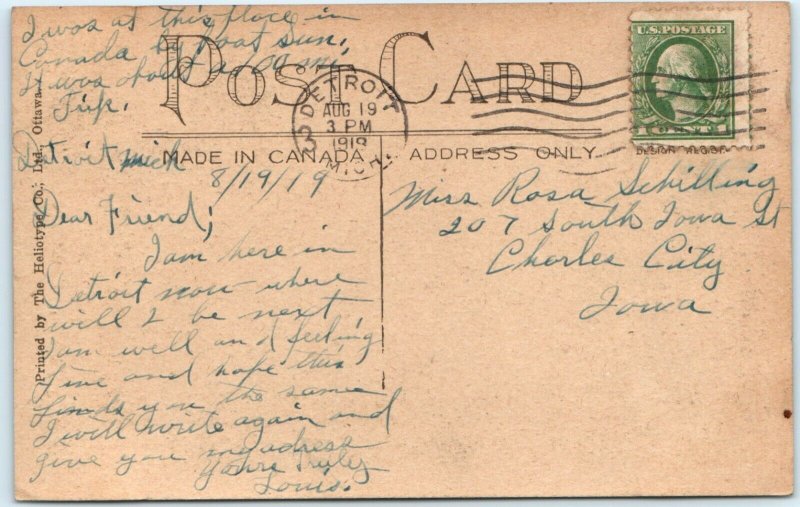 I was at this place in
Canada by boat sun,
it was about a 100 mi,
Trip.
POST CARD
U.S. POSTAGE
1 CENT 1
DETROIT
AUG 19
3 PM
1919
MICH.
MADE IN CANADA
ADDRESS ONLY.
Printed by The Heliotype Co., Ltd., Ottawa.
Detroit mich
8/19/19
Dear Friend;
I am here in
Detroit now where
will I be next
I am well and feeling
fine and hope this
finds you the same
I will write again and
give you my adress
Yours Truly
Louis.
Miss Rosa Schilling
207 South Iowa St
Charles City
Iowa